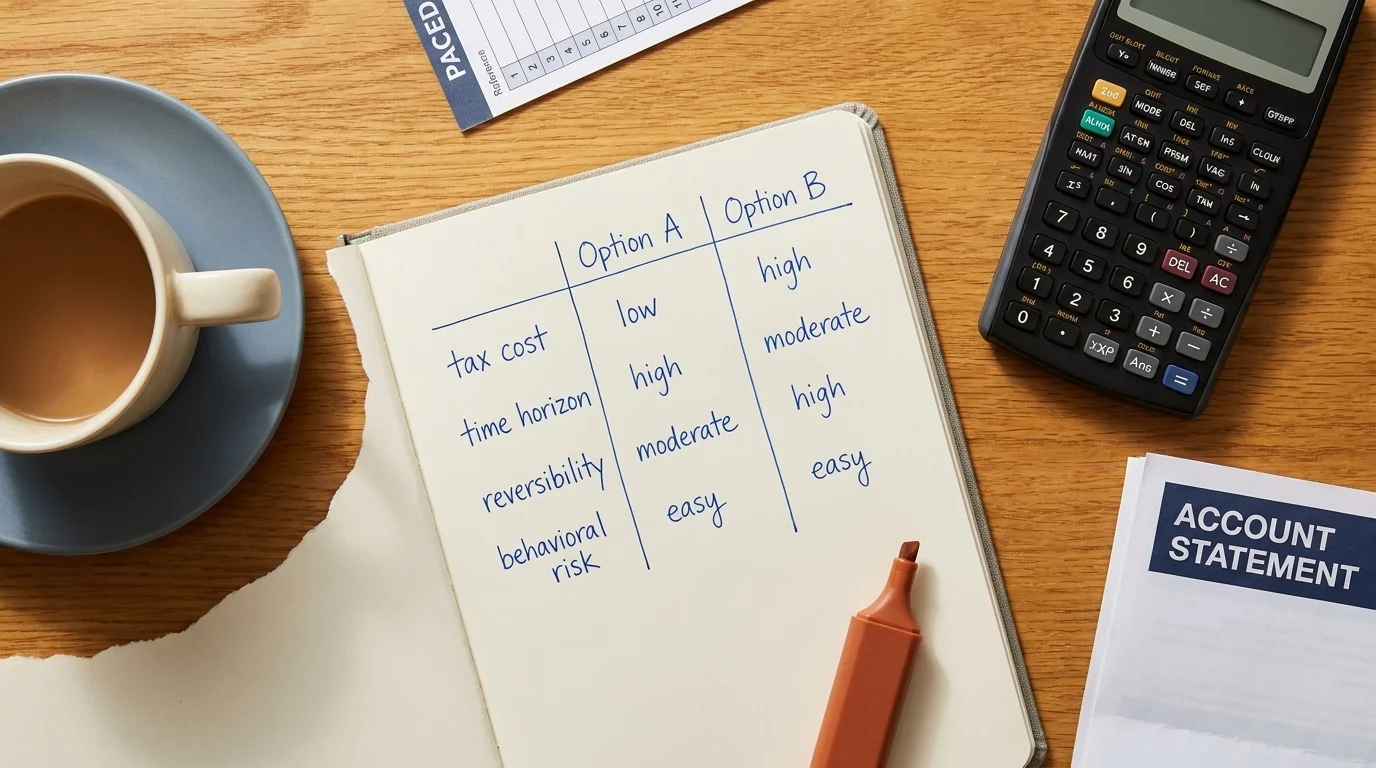 PACED
Reference
1 2 3 4 5 6 7 8 9 10 11
Option A Option B
tax cost low high
time horizon high moderate
reversibility moderate high
behavioral risk easy easy
2nd MODE DEL Ins
COS
7 8 9 DEL AC
4 5 6 × ÷
1 2 3 + −
0 . Ans =
ACCOUNT
STATEMENT